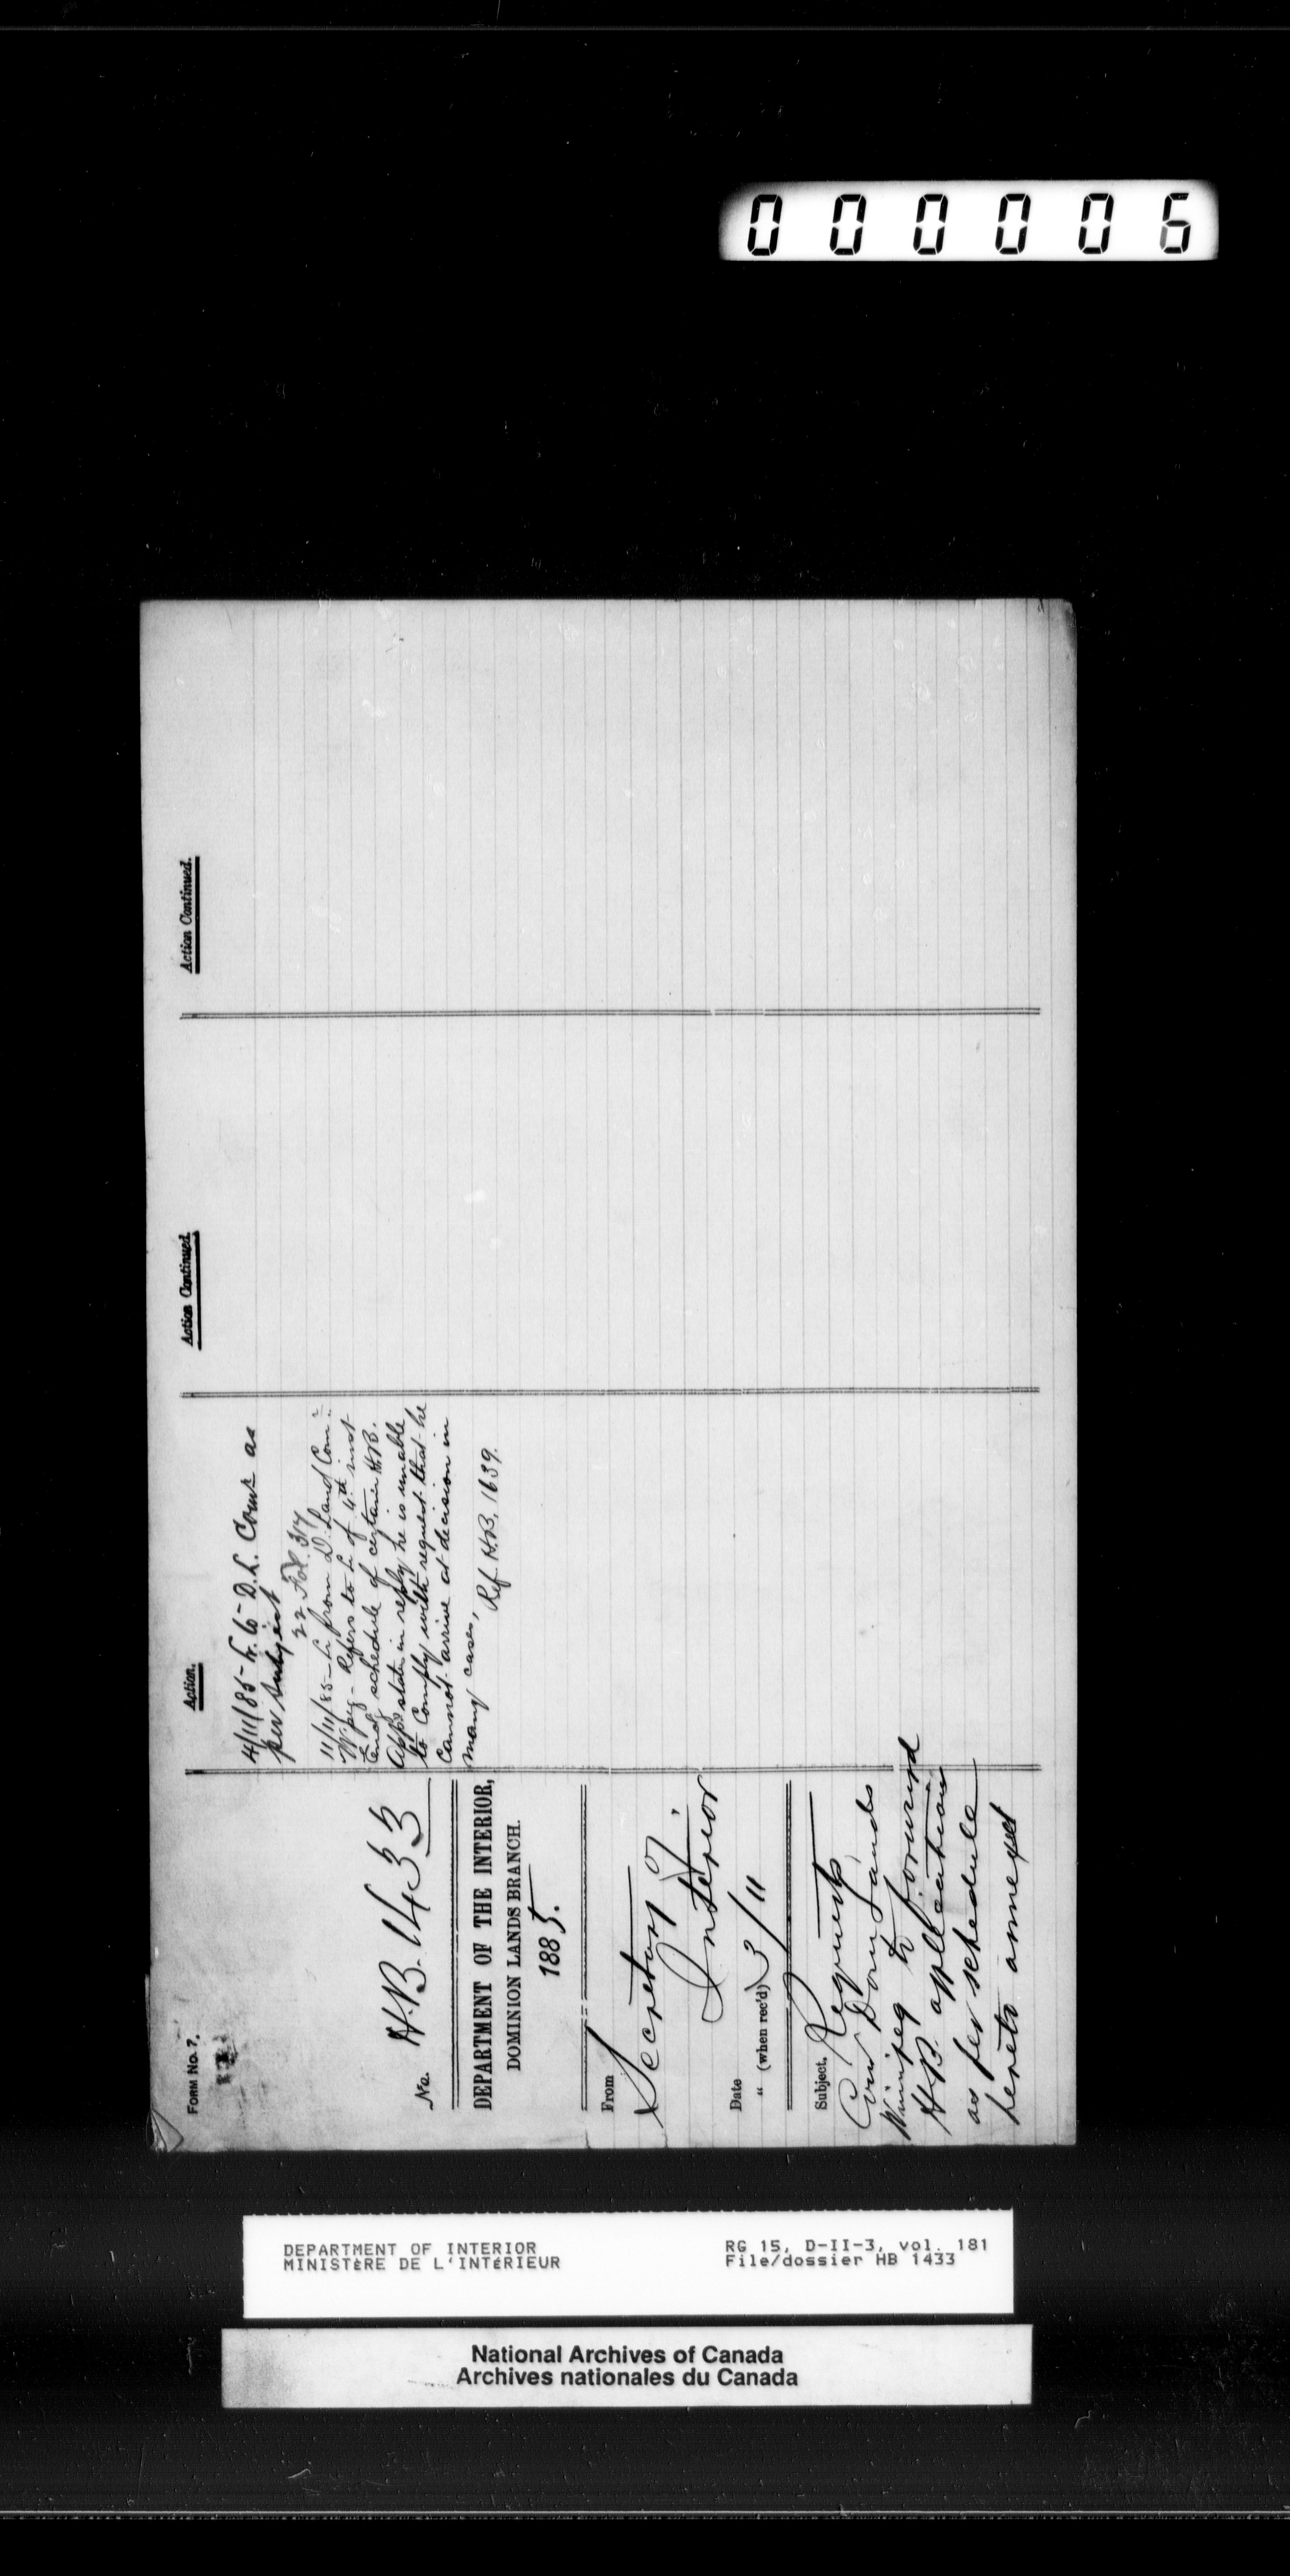 000006
FORM No. 7.
No. H.B. 1433
DEPARTMENT OF THE INTERIOR,
DOMINION LANDS BRANCH.
1885.
From
Secretary of
Interior
Date
" (when rec'd) 3/11
Subject. Requests
Com Dom Lands
Winnipeg to forward
HB applications
as per schedule
hereto annexed
Action.
4/11/85-L. to D.L. Comr as
per subject
22 Fol. 317
11/11/85-L. from D. Land Com:
W'peg - Refers to L. of 4th inst
Encl schedule of certain H.B.
Apps states in reply he is unable
to Comply with request that he
cannot arrive at decision in
many cases,
Ref H.B. 1639.
Action Continued.
Action Continued.
DEPARTMENT OF INTERIOR
MINISTÈRE DE L'INTÉRIEUR
RG 15, D-II-3, vol. 181
File/dossier HB 1433
National Archives of Canada
Archives nationales du Canada